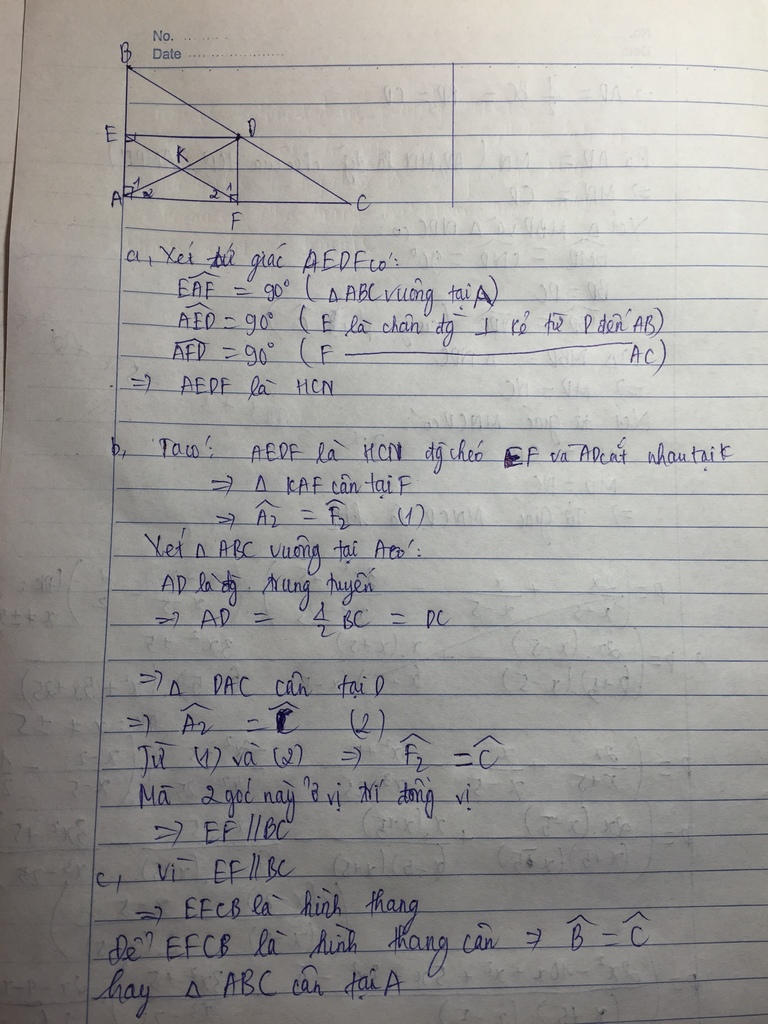 No.
Date
B
E
D
K
A
1
2
2
1
F
C
a, Xét tứ giác AEDF có:
EAF = 90° ( △ABC vuông tại A)
AED = 90° ( E là chân đg ⊥ kẻ từ D đến AB)
AFD = 90° ( F ———— AC)
=> AEDF là HCN
b, Ta có: AEDF là HCN đg chéo EF và AD cắt nhau tại K
=> △ KAF cân tại F
=> A2 = F2 (1)
Xét △ ABC vuông tại A có:
AD là đg trung tuyến
=> AD = 1/2 BC = DC
=> △ DAC cân tại D
=> A2 = C (2)
Từ (1) và (2) => F2 = C
Mà 2 góc này ở vị trí đồng vị
=> EF // BC
c, Vì EF // BC
=> EFCB là hình thang
Để EFCB là hình thang cân => B = C
hay △ ABC cân tại A